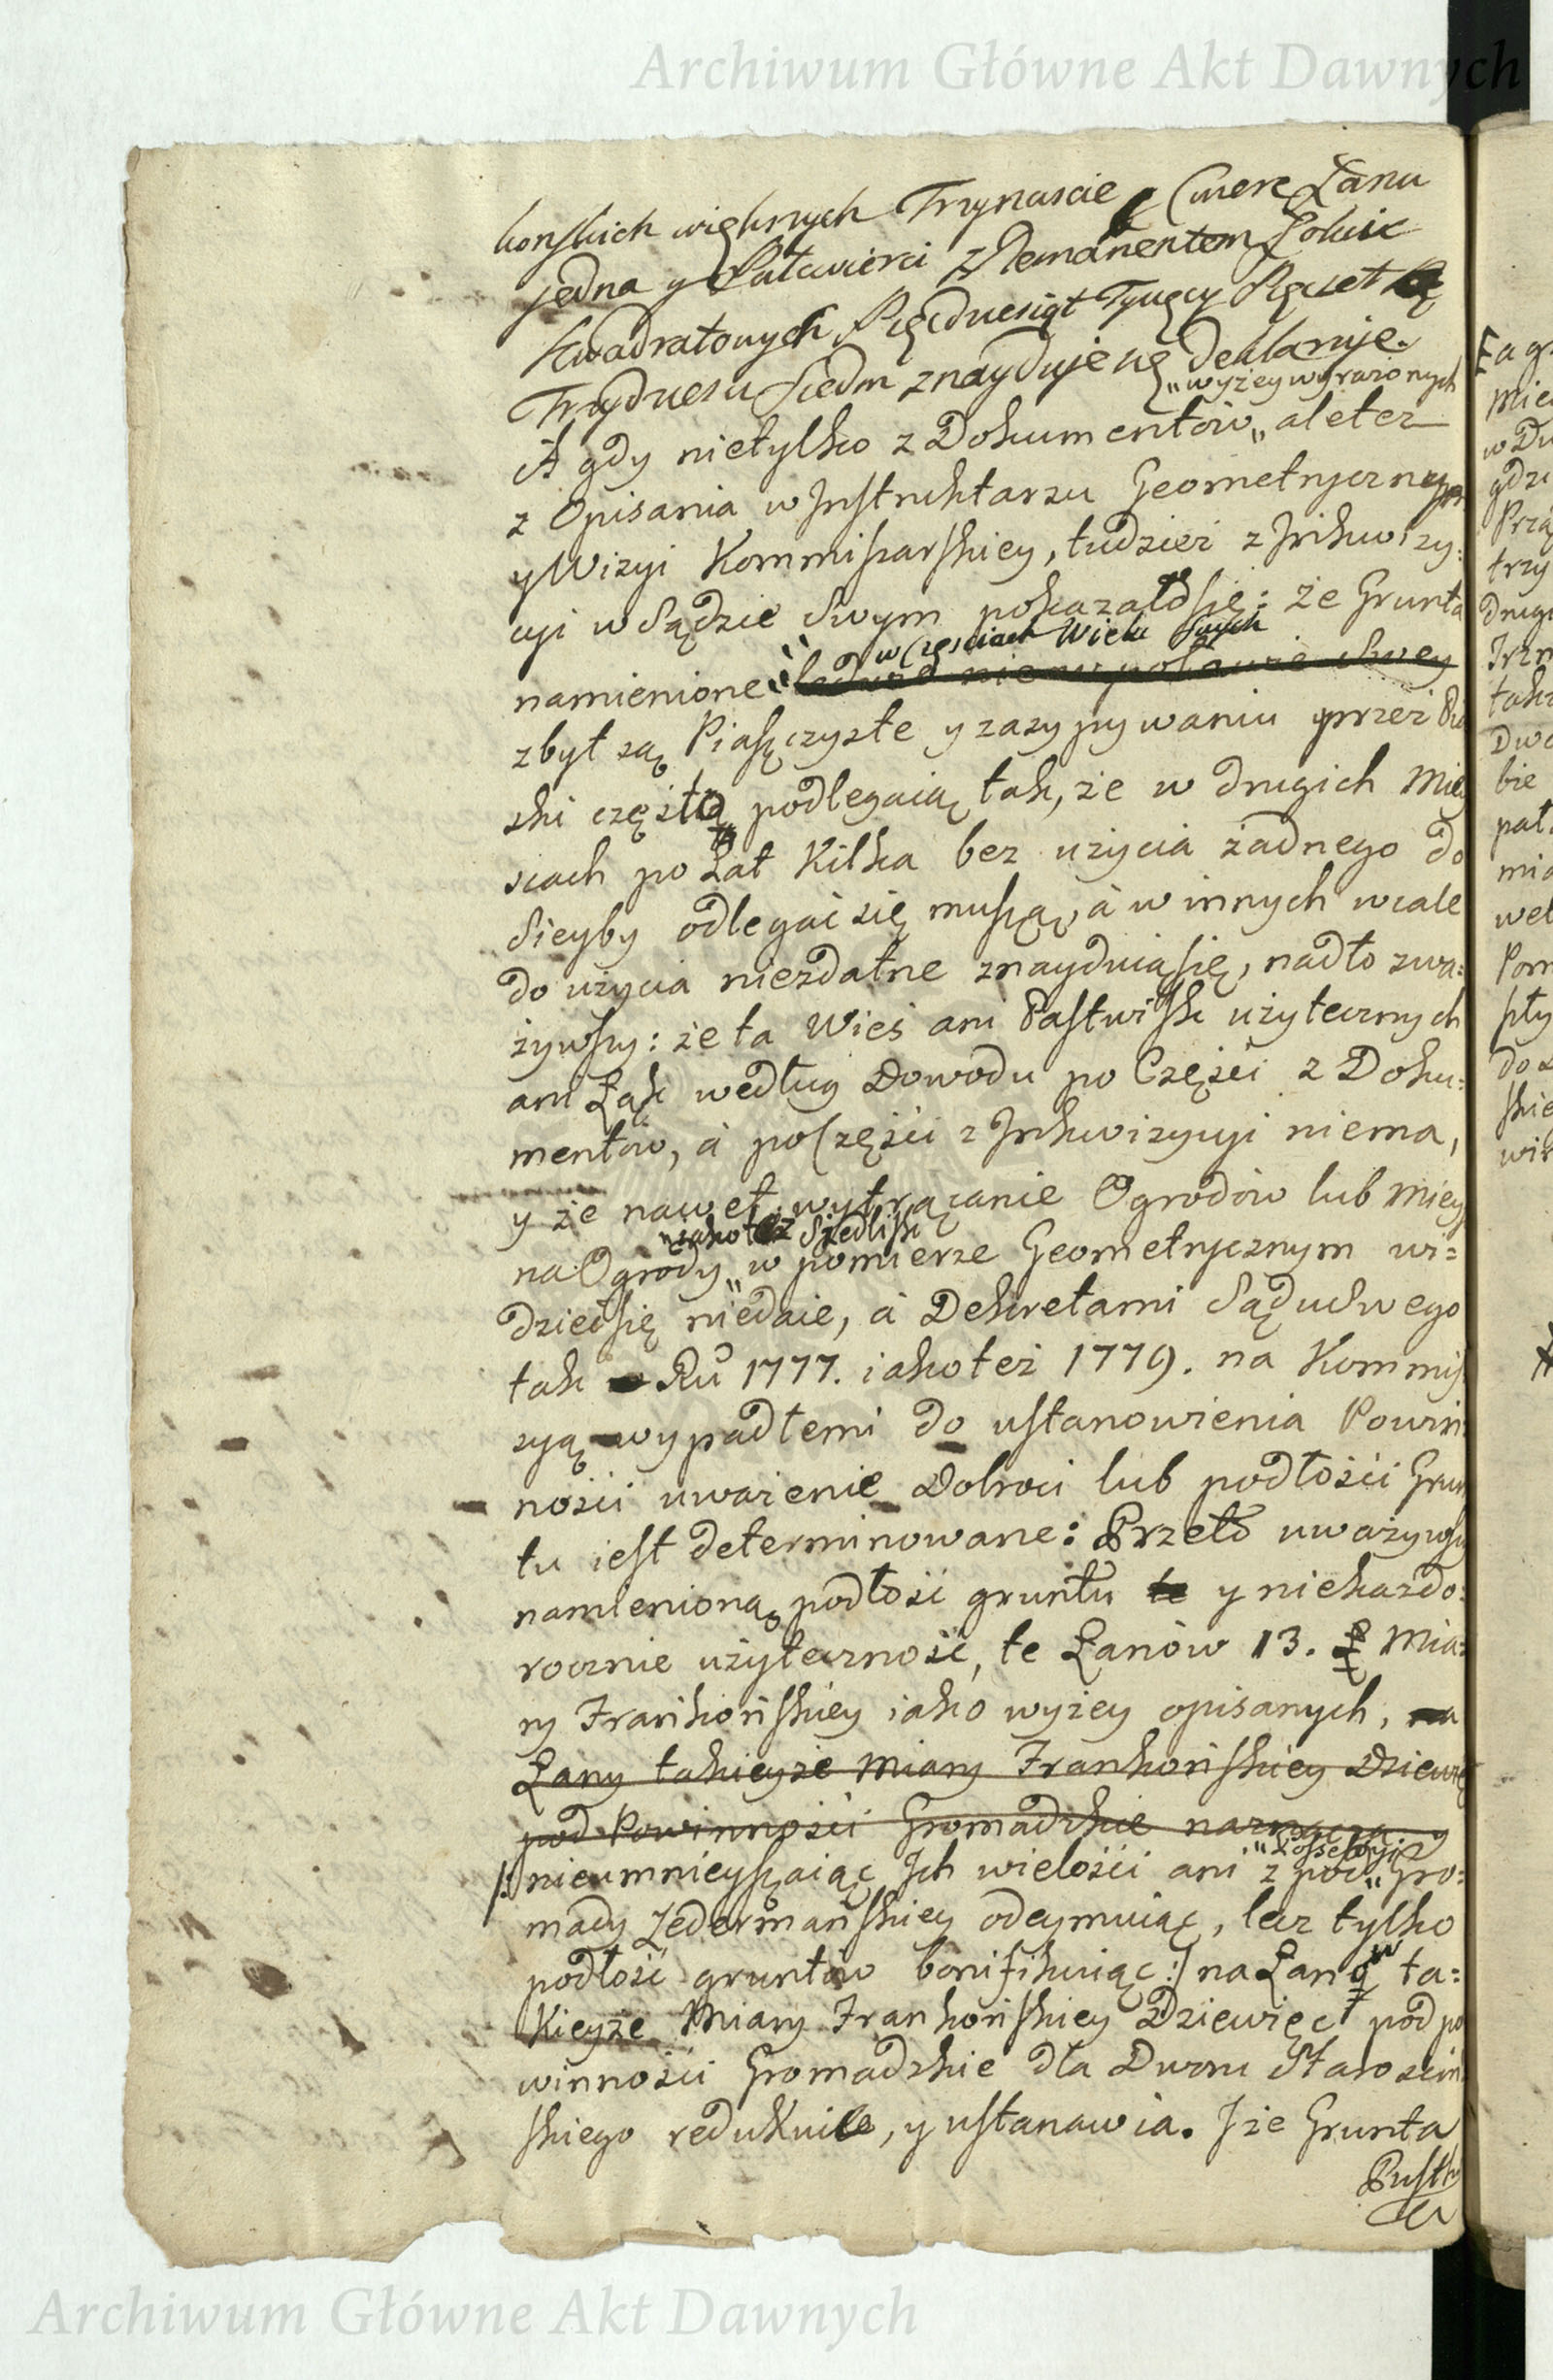 Archiwum Główne Akt Dawnych
końskich większych Trzynascie y Cwierc Łanu
jedna y Pułcwierci z Remanentem Łokci
Kwadratowych Pięcdziesiąt Tysięcy Pięcset
Trzydziesci Siedm znayduje się deklaruje.
„wyżey wyrażonych
A gdy nietylko z Dokumentów„ ale też
z Opisania w Instruktarzu Geometrycznym
y Wizyi Kommissarskiey, tudzież z Inkwizy:
cyi w Sądzie Swym pokazało się: że Grunta
w Częsciach Wielu Swych
namienione ledwo nie w połowie Swey
zbyt są Piaszczyste y zasypywaniu przez Pia
ski częsta podlegaią tak, że w drugich Miey
scach po Lat Kilka bez użycia żadnego do
Sieyby odlegać się muszą, à w innych wcale
do użycia niezdatne znayduią się, nadto zwa:
żywszy: że ta Wieś ani Pastwisk użytecznych
ani Łąk według Dowodu po Części z Doku:
mentów, à po Części z Inkwizycyi niema,
y że nawet wytrącanie Ogrodów lub Mieysc
„iako też Siedlisk
na Ogrody„ w pomierze Geometrycznym wi=
dzieć się niedaie, à Dekretami Sądu Swego
tak Rů 1777. iako też 1779. na Kommis
syą wypadłemi do ustanowienia Powin
ności uważenie Dobroci lub podłości Grun
tu iest determinowane: Przeto uważywszy
namienioną podłość gruntu te y niekażdo:
rocznie użyteczność, te Łanów 13. Mia:
ry Frankońskiey iako wyżey opisanych, na
Łany takieyże Miary Frankońskiey Dziewięć
pod Powinności Gromadzkie naznacza
„Possessyi
/: nieumnieyszaiąc Ich wielości ani z pod„ Gro:
mady Zedermańskiey odeymuiąc, lecz tylko
podłość gruntów bonifikuiąc :/ na Łanów ta:
Kieyże Miary Frankońskiey Dziewięć pod po
winności Gromadzkie dla Dworu Starościń
skiego redukuie, y ustanawia. I że Grunta
Puste
Archiwum Główne Akt Dawnych